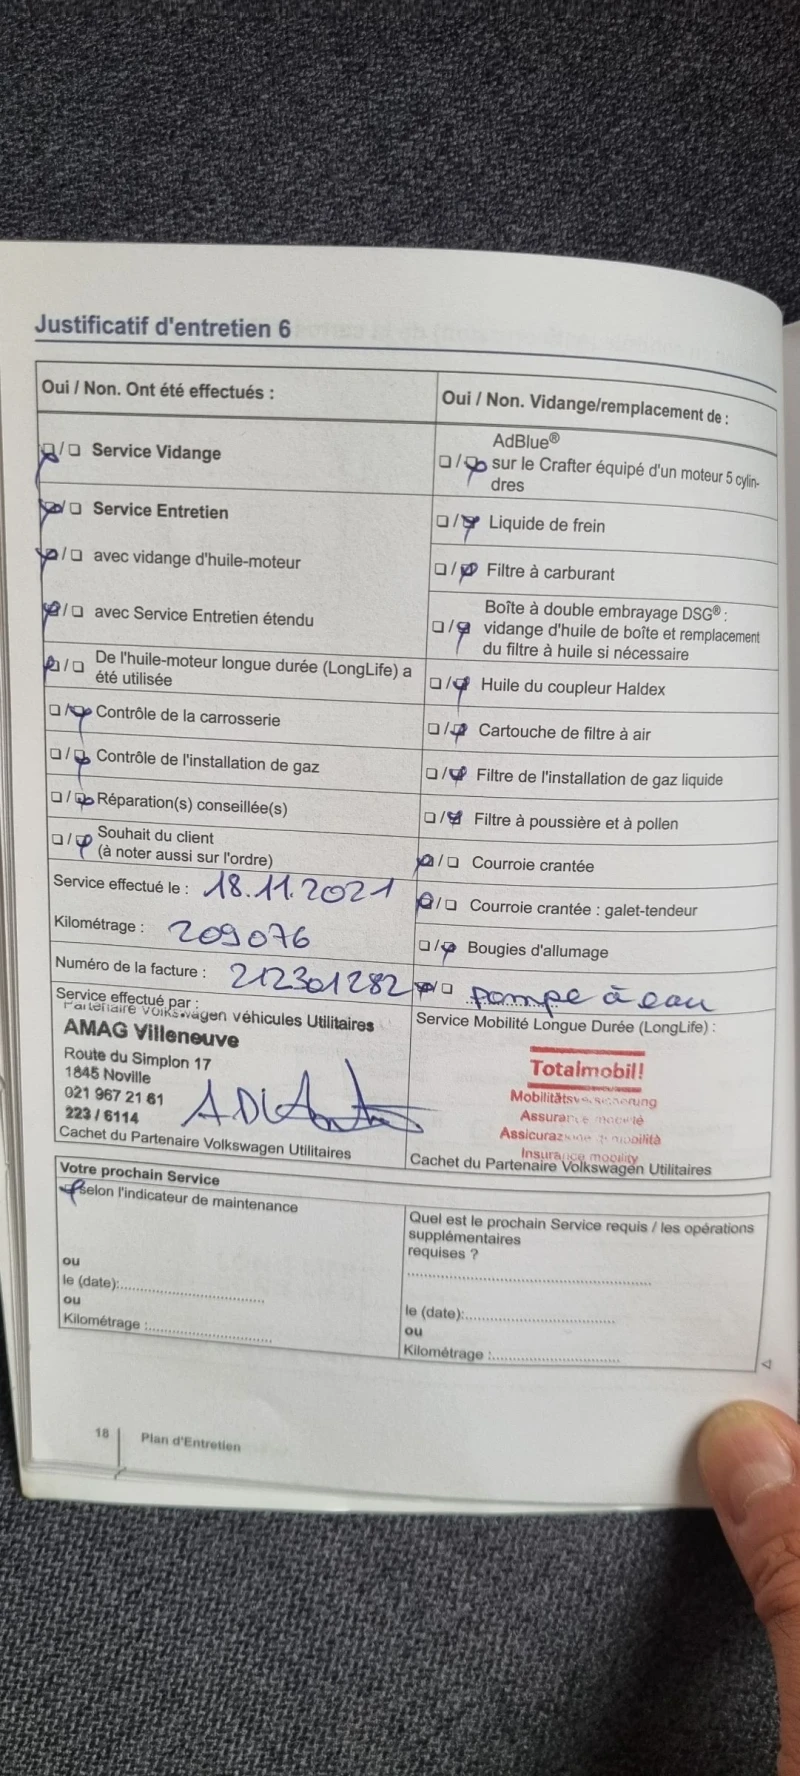 Justificatif d'entretien 6
Oui / Non. Ont été effectués :
☒/☐ Service Vidange
☒/☐ Service Entretien
☒/☐ avec vidange d'huile-moteur
☒/☐ avec Service Entretien étendu
☒/☐ De l'huile-moteur longue durée (LongLife) a
été utilisée
☐/☒ Contrôle de la carrosserie
☐/☒ Contrôle de l'installation de gaz
☐/☒ Réparation(s) conseillée(s)
☐/☒ Souhait du client
(à noter aussi sur l'ordre)
Service effectué le : 18.11.2021
Kilométrage : 209076
Numéro de la facture : 212301282
Service effectué par :
Partenaire Volkswagen Véhicules Utilitaires
AMAG Villeneuve
Route du Simplon 17
1845 Noville
021 967 21 61
223 / 6114
Cachet du Partenaire Volkswagen Utilitaires
Oui / Non. Vidange/remplacement de :
AdBlue®
☐/☒ sur le Crafter équipé d'un moteur 5 cylin-
dres
☐/☒ Liquide de frein
☐/☒ Filtre à carburant
Boîte à double embrayage DSG® :
☐/☒ vidange d'huile de boîte et remplacement
du filtre à huile si nécessaire
☐/☒ Huile du coupleur Haldex
☐/☒ Cartouche de filtre à air
☐/☒ Filtre de l'installation de gaz liquide
☐/☒ Filtre à poussière et à pollen
☒/☐ Courroie crantée
☒/☐ Courroie crantée : galet-tendeur
☐/☒ Bougies d'allumage
☒/☐ pompe à eau
Service Mobilité Longue Durée (LongLife) :
Totalmobil!
Mobilitätsversicherung
Assurance mobilité
Assicurazione di mobilità
Insurance mobility
Cachet du Partenaire Volkswagen Utilitaires
Votre prochain Service
☒ selon l'indicateur de maintenance
ou
le (date):
ou
Kilométrage :
Quel est le prochain Service requis / les opérations
supplémentaires
requises ?
le (date):
ou
Kilométrage :
18 Plan d'Entretien